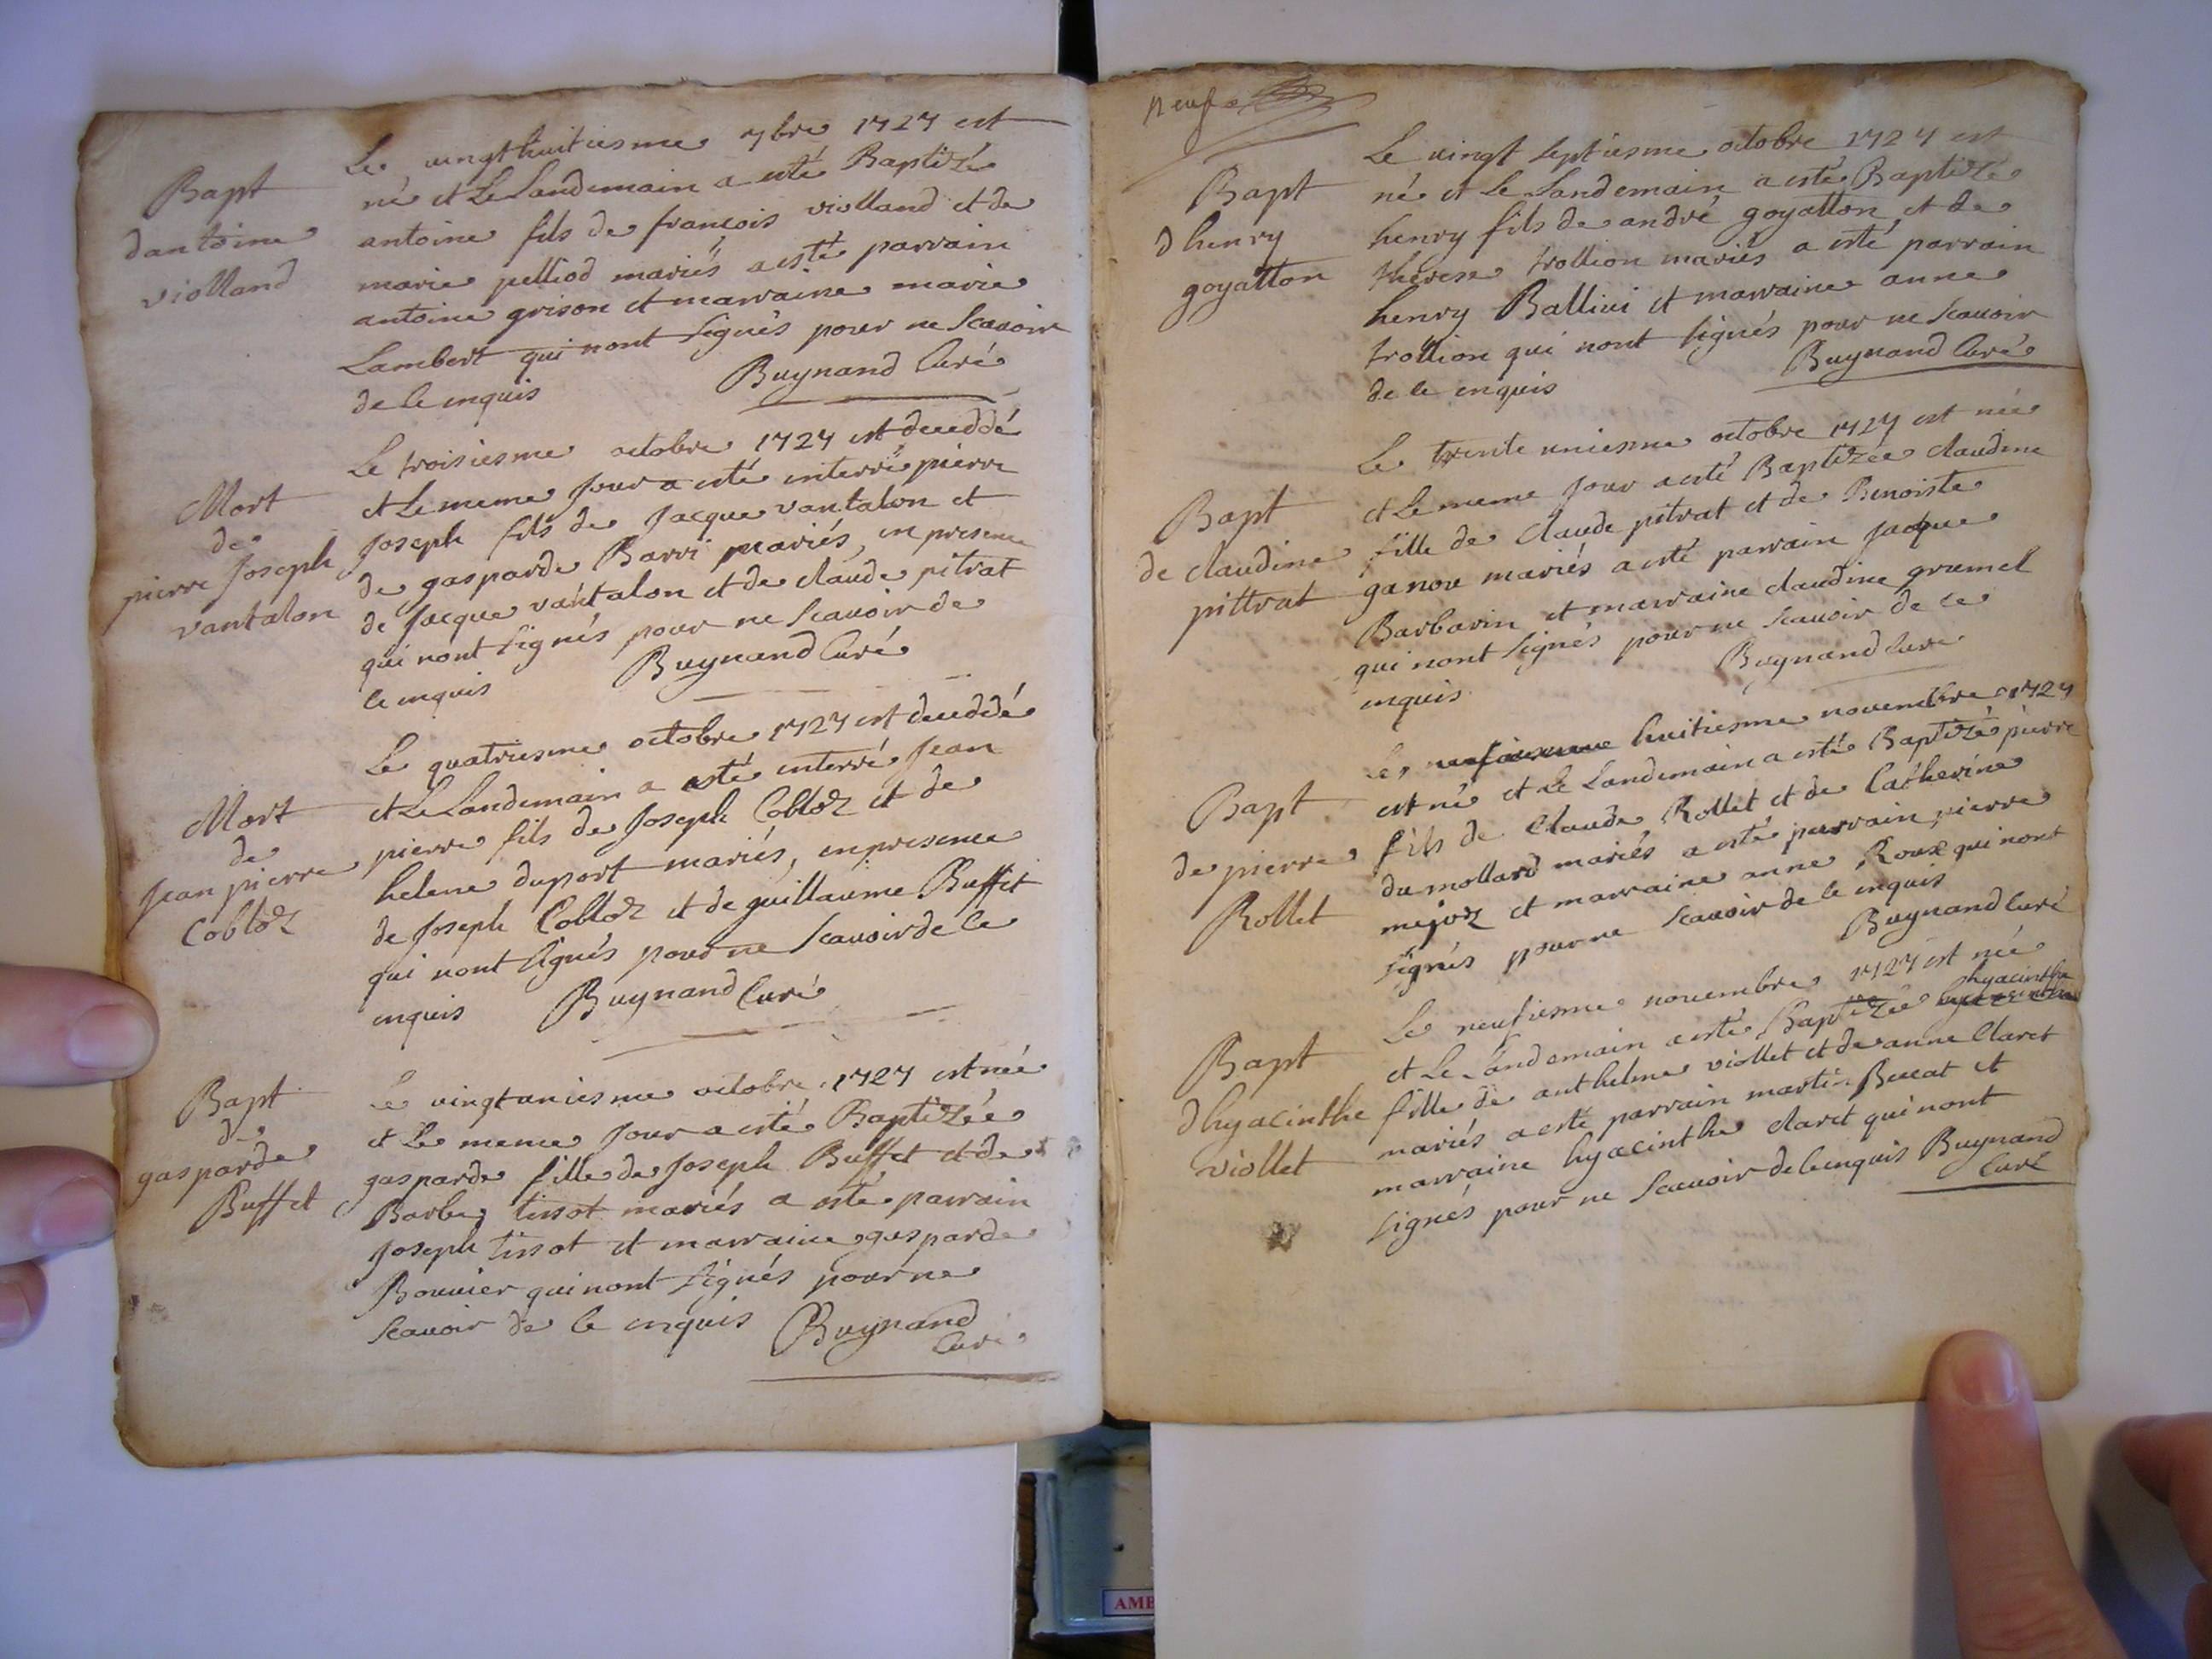 Bapt
dantoine
violland
Le vingthuitiesme 7bre 1727 est
né et Le Landemain a esté Baptizé
antoine fils de francois violland et de
marie pelliod mariés a esté parrain
antoine grison et marraine marie
Lambert qui nont signés pour ne scavoir
de ce enquis Buynand Curé
Mort
de
pierre Joseph
vantalon
Le troisiesme octobre 1727 est deceddé
et Le meme Jour a esté enterré pierre
Joseph fils de Jacque vantalon et
de gasparde Barri mariés, en presence
de Jacque vantalon et de claude pitrat
qui nont signés pour ne scavoir de
ce enquis Buynand Curé
Mort
de
Jean pierre
Cobloz
Le quatriesme octobre 1727 est deceddé
et Le Landemain a esté enterré Jean
pierre fils de Joseph Cobloz et de
helene duport mariés, en presence
de Joseph Cobloz et de guillaume Buffet
qui nont signés pour ne scavoir de ce
enquis Buynand Curé
Bapt
de
gasparde
Buffet
Le vingtuniesme octobre 1727 est née
et Le meme Jour a esté Baptizée
gasparde fille de Joseph Buffet et de
Barbe tissot mariés a esté parrain
Joseph tissot et marraine gasparde
Bouvier qui nont signés pour ne
scavoir de ce enquis Buynand
Curé
neuf
Bapt
dhenry
goyatton
Le vingt septiesme octobre 1727 est
né et Le Landemain a esté Baptizé
henry fils de andré goyatton et de
therese trollion mariés a esté parrain
henry Ballivi et marraine anne
trollion qui nont signés pour ne scavoir
de ce enquis Buynand Curé
Bapt
de claudine
pittrat
Le trente uniesme octobre 1727 est née
et Le meme Jour a esté Baptizée claudine
fille de claude pitrat et de Benoiste
ganou mariés a esté parrain Jacque
Barbarin et marraine claudine grumel
qui nont signés pour ne scavoir de ce
enquis Buynand Curé
Bapt
de pierre
Rollet
Le huitiesme novembre 1727
est né et Le Landemain a esté Baptizé pierre
fils de Claude Rollet et de Catherine
du mollard mariés a esté parrain pierre
mejoz et marraine anne Roux qui nont
signés pour ne scavoir de ce enquis
Buynand Curé
Bapt
dhyacinthe
viollet
Le neufiesme novembre 1727 est née
et Le Landemain a esté Baptizée hyacinthe
fille de anthelme viollet et de anne Claret
mariés a esté parrain martin Buccat et
marraine hyacinthe claret qui nont
signés pour ne scavoir de ce enquis Buynand
Curé
AME